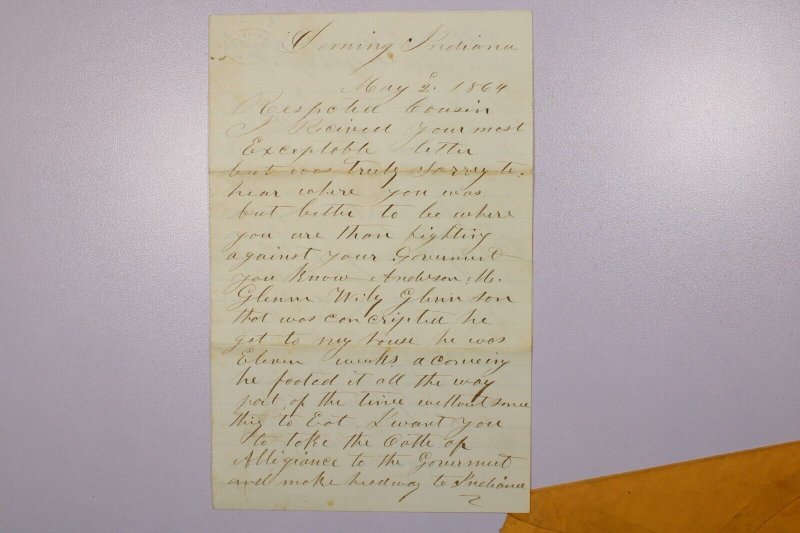 Indiana
May 2. 1864
Respected Cousin
I Recived your most
Exceptable letter
but was truly sorry to
hear where you was
but bette to be where
you are than fighting
against your Goverment
you Know Anderson Mc
Glenn Wily Glinn son
that was concripted he
got to my house he was
Eleven weeks a comeing
he footed it all the way
part of the time without some
thig to Eat. I want you
to take the Oath of
Alligiance to the Goverment
and make headway to Indiana